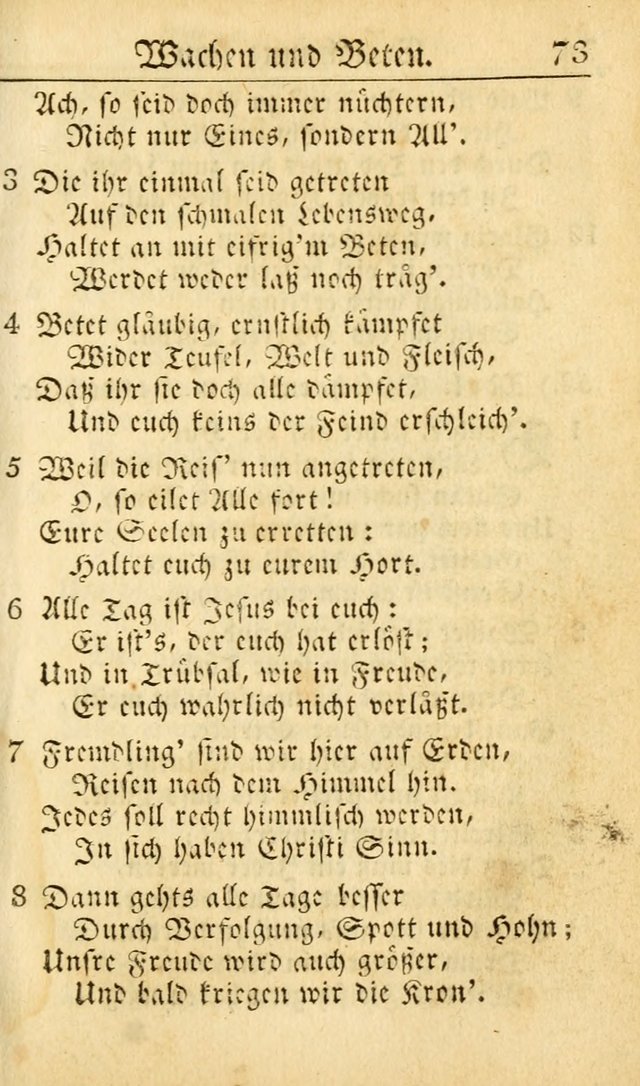 Wachen und Beten. 73
Ach, so seid doch immer nüchtern,
Nicht nur Eines, sondern All'.
3 Die ihr einmal seid getreten
Auf den schmalen Lebensweg,
Haltet an mit eifrig'm Beten,
Werdet weder laß noch träg'.
4 Betet gläubig, ernstlich kämpfet
Wider Teufel, Welt und Fleisch,
Daß ihr sie doch alle dämpfet,
Und euch keins der Feind erschleich'.
5 Weil die Reis' nun angetreten,
O, so eilet Alle fort!
Eure Seelen zu erretten:
Haltet euch zu eurem Hort.
6 Alle Tag ist Jesus bei euch:
Er ist's, der euch hat erlößt;
Und in Trübsal, wie in Freude,
Er euch wahrlich nicht verläßt.
7 Fremdling' sind wir hier auf Erden,
Reisen nach dem Himmel hin.
Jedes soll recht himmlisch werden,
In sich haben Christi Sinn.
8 Dann gehts alle Tage besser
Durch Verfolgung, Spott und Hohn;
Unsre Freude wird auch größer,
Und bald kriegen wir die Kron'.